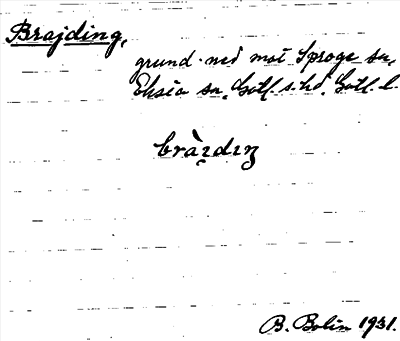 Brajding,
grund ned mot Sproge sn,
Eksta sn, Gotl. s. hd, Gotl. l.
bràɪ̯dɪŋ
B. Bolin 1931.